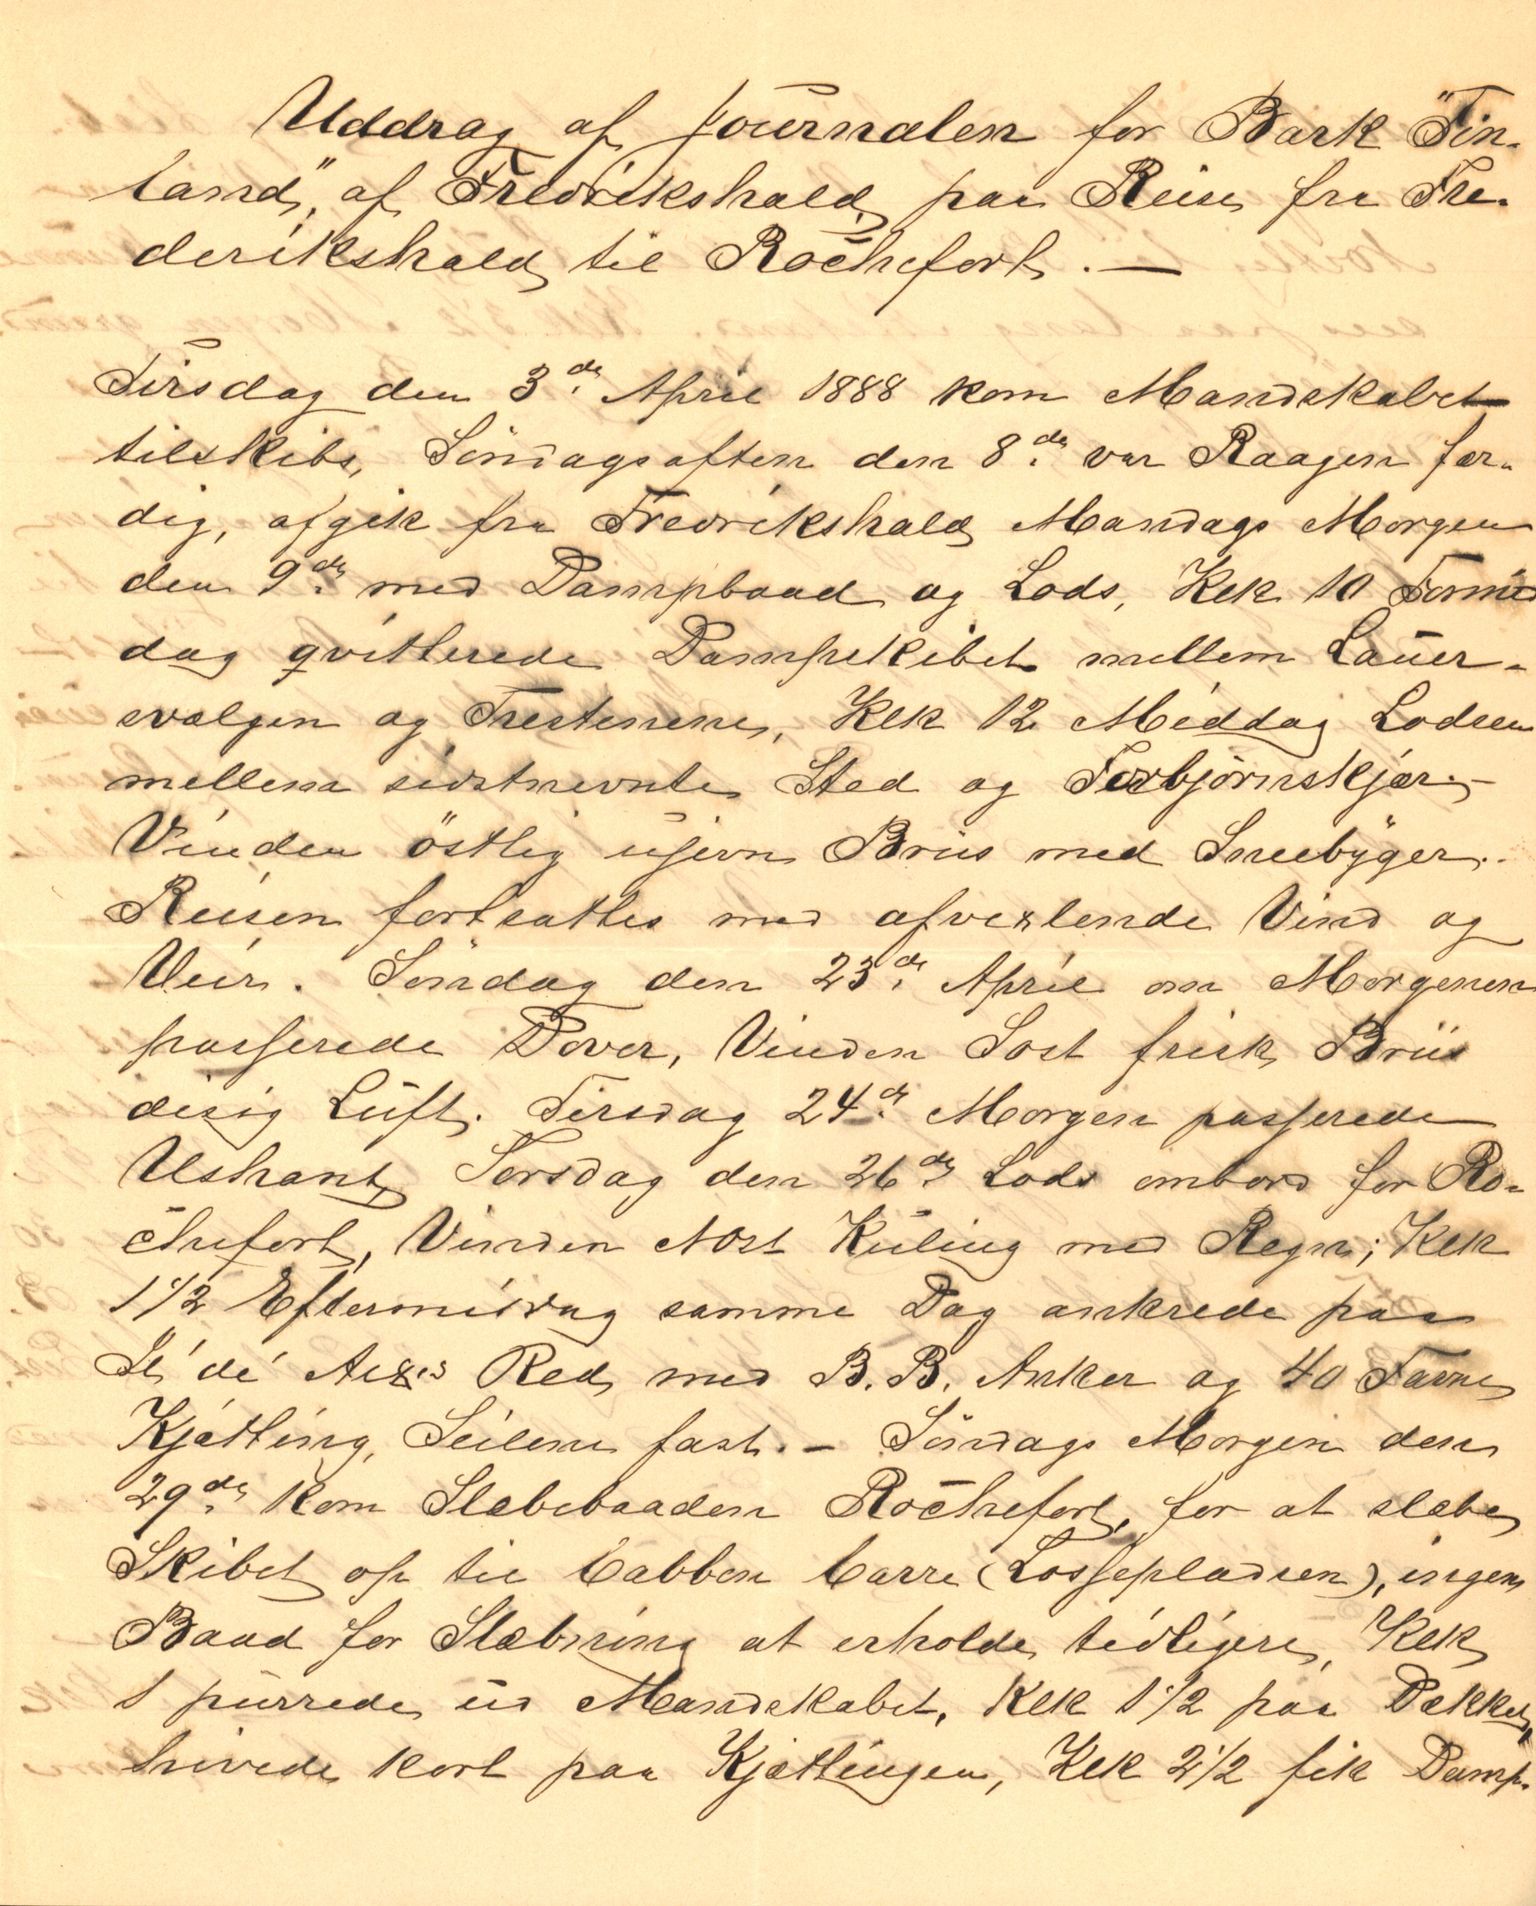 Uddrag af Journalen for Bark "Fin-
land", af Fredrikshald, paa Reise fra Fre-
derikshald til Rochefort. —
Tirsdag den 3de April 1888 kom Mandskabet
tilskibs, Söndagsaften den 8de var Raagen fær-
dig, afgik fra Fredrikshald Mandags Morgen
den 9de med Dampbaad og Lods, Klk 10 Formid
dag qvitterede Dampskibet mellem Lauer-
svælgen og Trestenene, Klk 12 Middag Lodsen
mellem sidstnevnte Sted og Torbjörnskjær. —
Vinden östlig ujevn Briis med Sneebyger.
Reisen fortsattes med afvexlende Vind og
Veir. Söndag den 23de April om Morgenen
passerede Dover, Vinden Sost frisk Briis
disig Luft. Tirsdag 24de Morgen passerede
Ushant, Torsdag den 26de Lods ombord for Ro-
chefort, Vinden NOst Kuling med Regn; Klk
1 1/2 Eftermiddag samme Dag ankrede paa
Il de Aixes Red, med B. B. Anker og 40 Favne
Kjætting, Seilene fast. — Söndags Morgen den
29de kom Slæbebaaden Rochefort, for at slæbe
Skibet op til Cabben Carre (Lossepladsen), ingen
Baad for Slæbning at erholde tidligere, Klk
1 purrede ud Mandskabet, Klk 1 1/2 paa Dækket,
hivede kort paa Kjættingen, Klk 2 1/2 fik Damp-